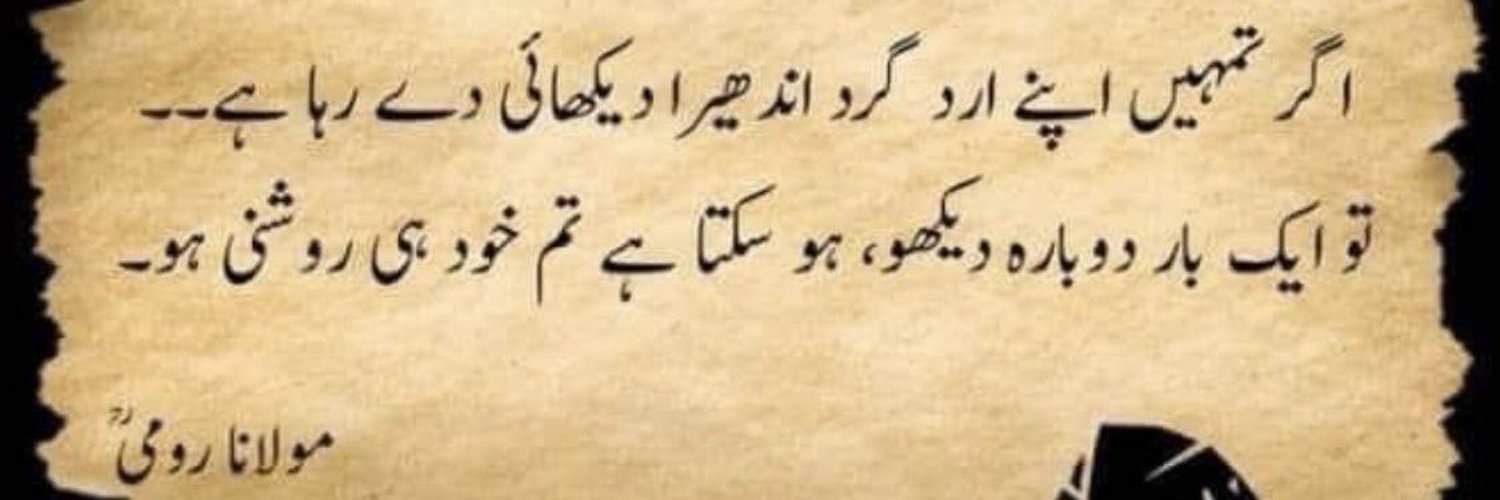 اگر تمہیں اپنے ارد گرد اندھیرا دیکھائی دے رہا ہے۔۔
تو ایک بار دوبارہ دیکھو، ہو سکتا ہے تم خود ہی روشنی ہو۔
مولانا رومیؒ